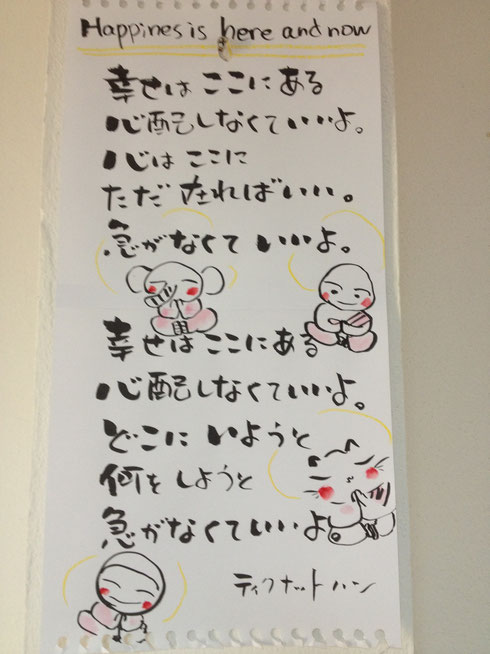 Happines is here and now
幸せは ここに ある
心配しなくていいよ。
心は ここに
ただ 在ればいい。
急がなくて いいよ。
幸せは ここに ある
心配しなくていいよ。
どこに いようと
何を しようと
急がなくていいよ
ティクナットハン